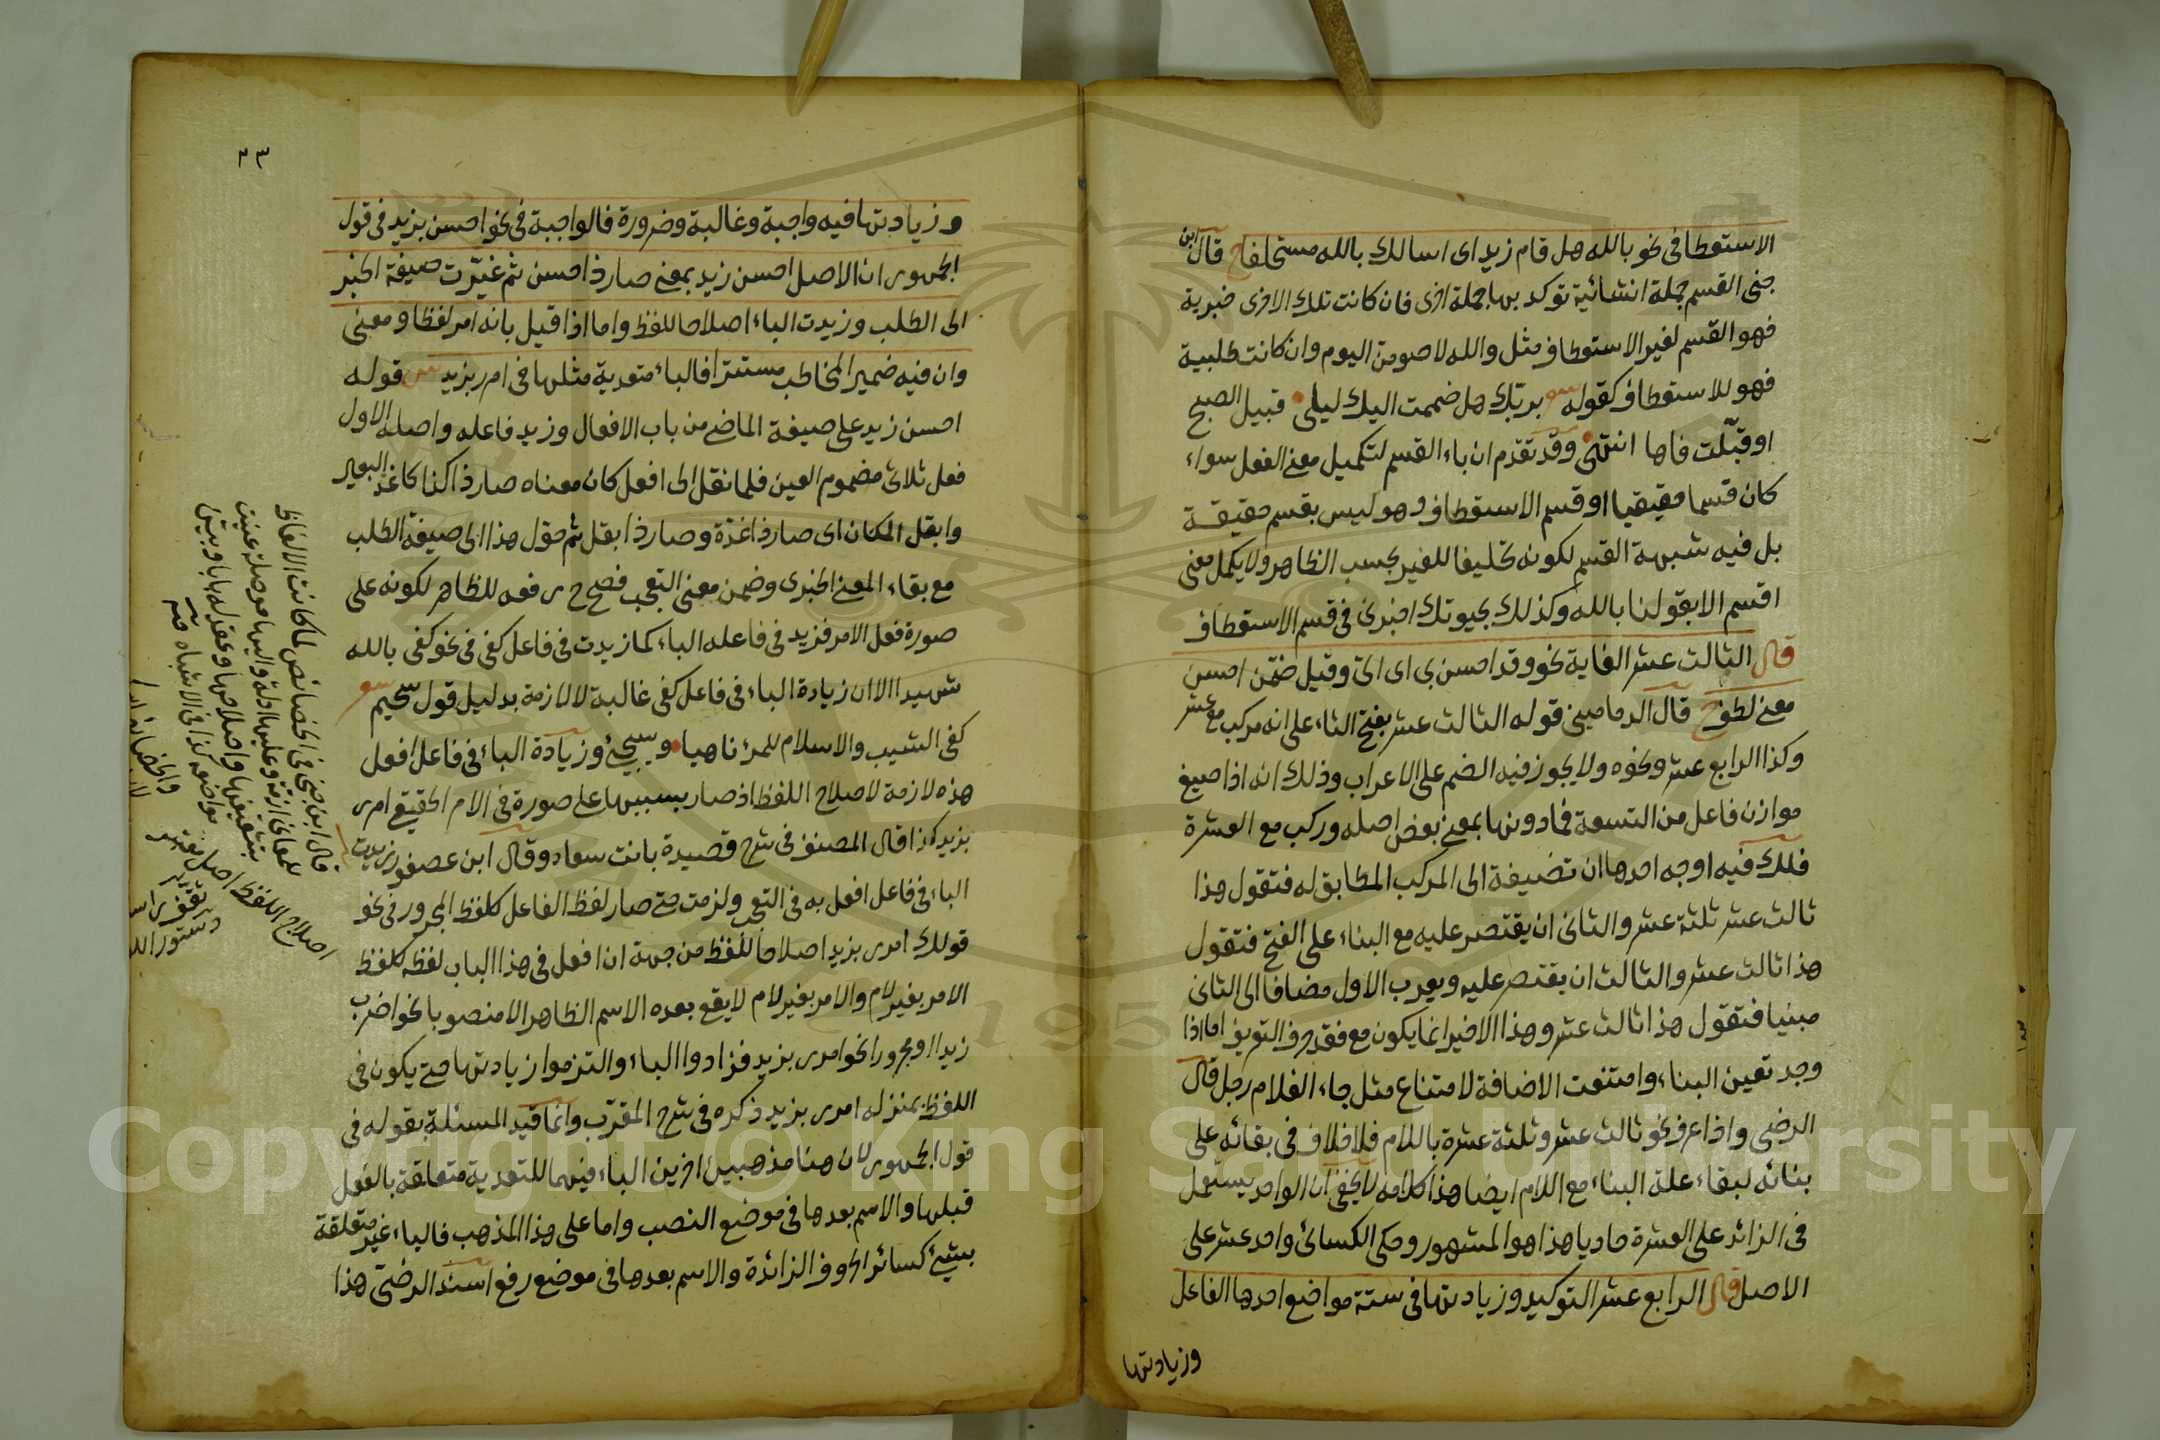 الاستعطافى نحو بالله هل قام زيد اى اسالك بالله مستحلفا ح قال ابن
جنى القسم جملة انشائية توكد بها جملة اخرى فان كانت تلك الاخرى خبرية
فهو القسم لغير الاستعطاف مثل والله لاصومن اليوم وان كانت طلبية
فهو للاستعطاف كقوله بربك هل ضممت اليك ليلى قبيل الصبح
او قبّلت فاها انتهى وقد تقدم ان باء القسم لتكميل معنى الفعل سواء
كان قسما حقيقيا او قسم الاستعطاف وهو ليس بقسم حقيقة
بل فيه شبهة القسم لكونه تحليفا للغير بحسب الظاهر ولا يكمل معنى
اقسم الا بقولنا بالله وكذلك بحيوتك اخبرنى فى قسم الاستعطاف
قال الثالث عشر الغاية نحو وقد احسن بى اى الىّ وقيل ضمّن احسن
معنى لطف ح قال الدمامينى قوله الثالث عشر بفتح الثاء على انه مركب مع عشر
وكذا الرابع عشر ونحوه ولا يجوز فيه الضم على الاعراب وذلك انه اذا صيغ
موازن فاعل من التسعة فمادونها بمعنى بعض اصله وركب مع العشرة
فلك فيه اوجه احدها ان تضيفه الى المركب المطابق له فتقول هذا
ثالث عشر ثلثة عشر والثانى ان يقتصر عليه مع البناء على الفتح فتقول
هذا ثالث عشر والثالث ان يقتصر عليه ويعرب الاول مضافا الى الثانى
مبنيا فتقول هذا ثالث عشر وهذا الاخير انما يكون مع فقد حرف التعريف اما اذا
وجد تعين البناء وامتنعت الاضافة لامتناع مثل جاء الغلام رجل قال
الرضى واذا عرف نحو ثالث عشر وثلثة عشرة باللام فلا خلاف فى بقائه على
بنائه لبقاء علة البناء مع اللام ايضا هذا كلامه لا يخفى ان الواحد يستعمل
فى الزائد على العشرة حاديا هذا هو المشهور وحكى الكسائى واحد عشر على
الاصل قال الرابع عشر التوكيد وزيادتها فى ستة مواضع احدها الفاعل
وزيادتها
٢٣
وزيادتها فيه واجبة وغالبة وضرورة فالواجبة فى نحو احسن بزيد فى قول
الجمهور ان الاصل احسن زيد بمعنى صار ذا حسن ثم غيّرت صيغة الخبر
الى الطلب وزيدت الباء اصلاحا للفظ واما اذا قيل بانه امر لفظا ومعنى
وان فيه ضمير المخاطب مستترا فالباء متعدية مثلها فى امرر بزيد قوله
احسن زيد على صيغة الماضى من باب الافعال وزيد فاعله واصله الاول
فعل ثلاثى مضموم العين فلما نقل الى افعل كان معناه صار ذا كذا كاغدّ البعير
وابقل المكان اى صار ذا غدّة وصار ذا بقل ثم حول هذا الى صيغة الطلب
مع بقاء المعنى الخبرى وضمن معنى التعجب فصح ح رفعه للظاهر لكونه على
صورة فعل الامر فزيد فى فاعله الباء كما زيدت فى فاعل كفى فى نحو كفى بالله
شهيدا الا ان زيادة الباء فى فاعل كفى غالبة لا لازمة بدليل قول سحيم
كفى الشيب والاسلام للمرء ناهيا وسيجئ وزيادة الباء فى فاعل افعل
هذه لازمة لاصلاح اللفظ اذ صار بسببها على صورة فى الامر الحقيقى امرر
بزيد كذا قال المصنف فى شرح قصيدة بانت سعاد وقال ابن عصفور زيدت
الباء فى فاعل افعل به فى التعجب ولزمت حتى صار لفظ الفاعل كلفظ المجرور فى نحو
قولك امرر بزيد اصلاحا للفظ من جهة ان افعل فى هذا الباب لفظه كلفظ
الامر بغير لام والامر بغير لام لا يقع بعده الاسم الظاهر الا منصوبا نحو اضرب
زيدا او مجرورا نحو امرر بزيد فزادوا الباء والتزموا زيادتها حتى يكون فى
اللفظ بمنزلة امرر بزيد ذكره فى شرح المقرّب وانما قيد المسئلة بقوله فى
قول الجمهور لان هنا مذهبين اخرين الباء فيهما للتعدية متعلقة بالفعل
قبلها والاسم بعدها فى موضع النصب واما على هذا المذهب فالباء غير متعلقة
بشئ كسائر الحروف الزائدة والاسم بعدها فى موضع رفع اسند الرضىّ هذا
قال ابن جنى فى الخصائص لما كانت الالفاظ
للمعانى ازمّة وعليها ادلة واليها موصلة عنيت
بتثقيفها واصلاحها
مواضعه كذا فى الاشباه
اصلاح اللفظ اصل